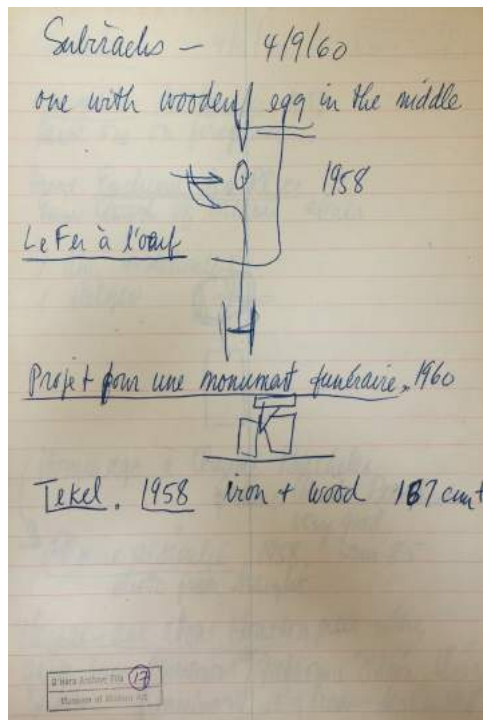 Subirachs — 4/9/60
one with wooden egg in the middle
1958
Le Fer à l'oeuf
Projet pour une monument funéraire, 1960
Tekel. 1958 iron + wood 187 cm
O'Hara Archive File 17
Museum of Modern Art